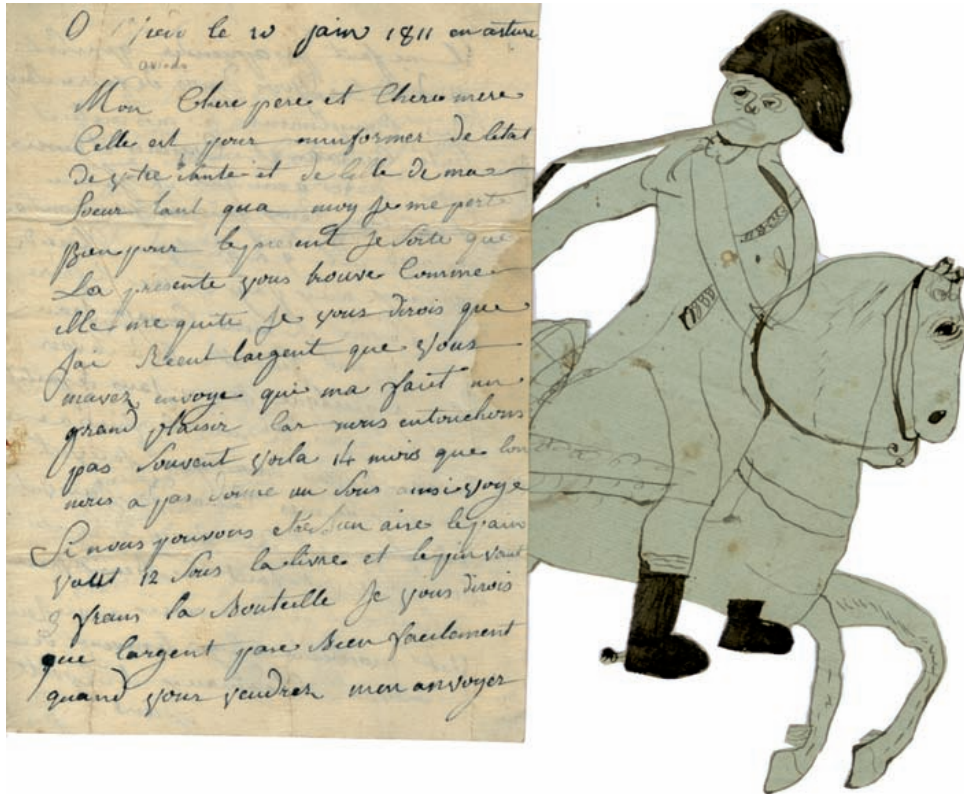 le 10 juin 1811 en asturie
oviedo
Mon Chere pere et Chere mere
Celle est pour minformer de letat
de votre sante et de celle de ma
Soeur tant qua moy Je me porte
Bien pour le present Je Sorte que
La presente vous trouve Comme
elle me quite Je vous dirois que
Jai Recut largent que vous
mavez envoye qui ma fait un
grand plaisir Car nous entouchons
pas Souvent voila 14 mois que lon
nous a pas donne un Sous ainsi voye
Si nous pouvons etre Bien aire le pain
vaut 12 Sous la livre et le vin vaut
3 frans la Bouteille Je vous dirois
que largent pase Bien facilement
quand vous voudrez men anvoyer